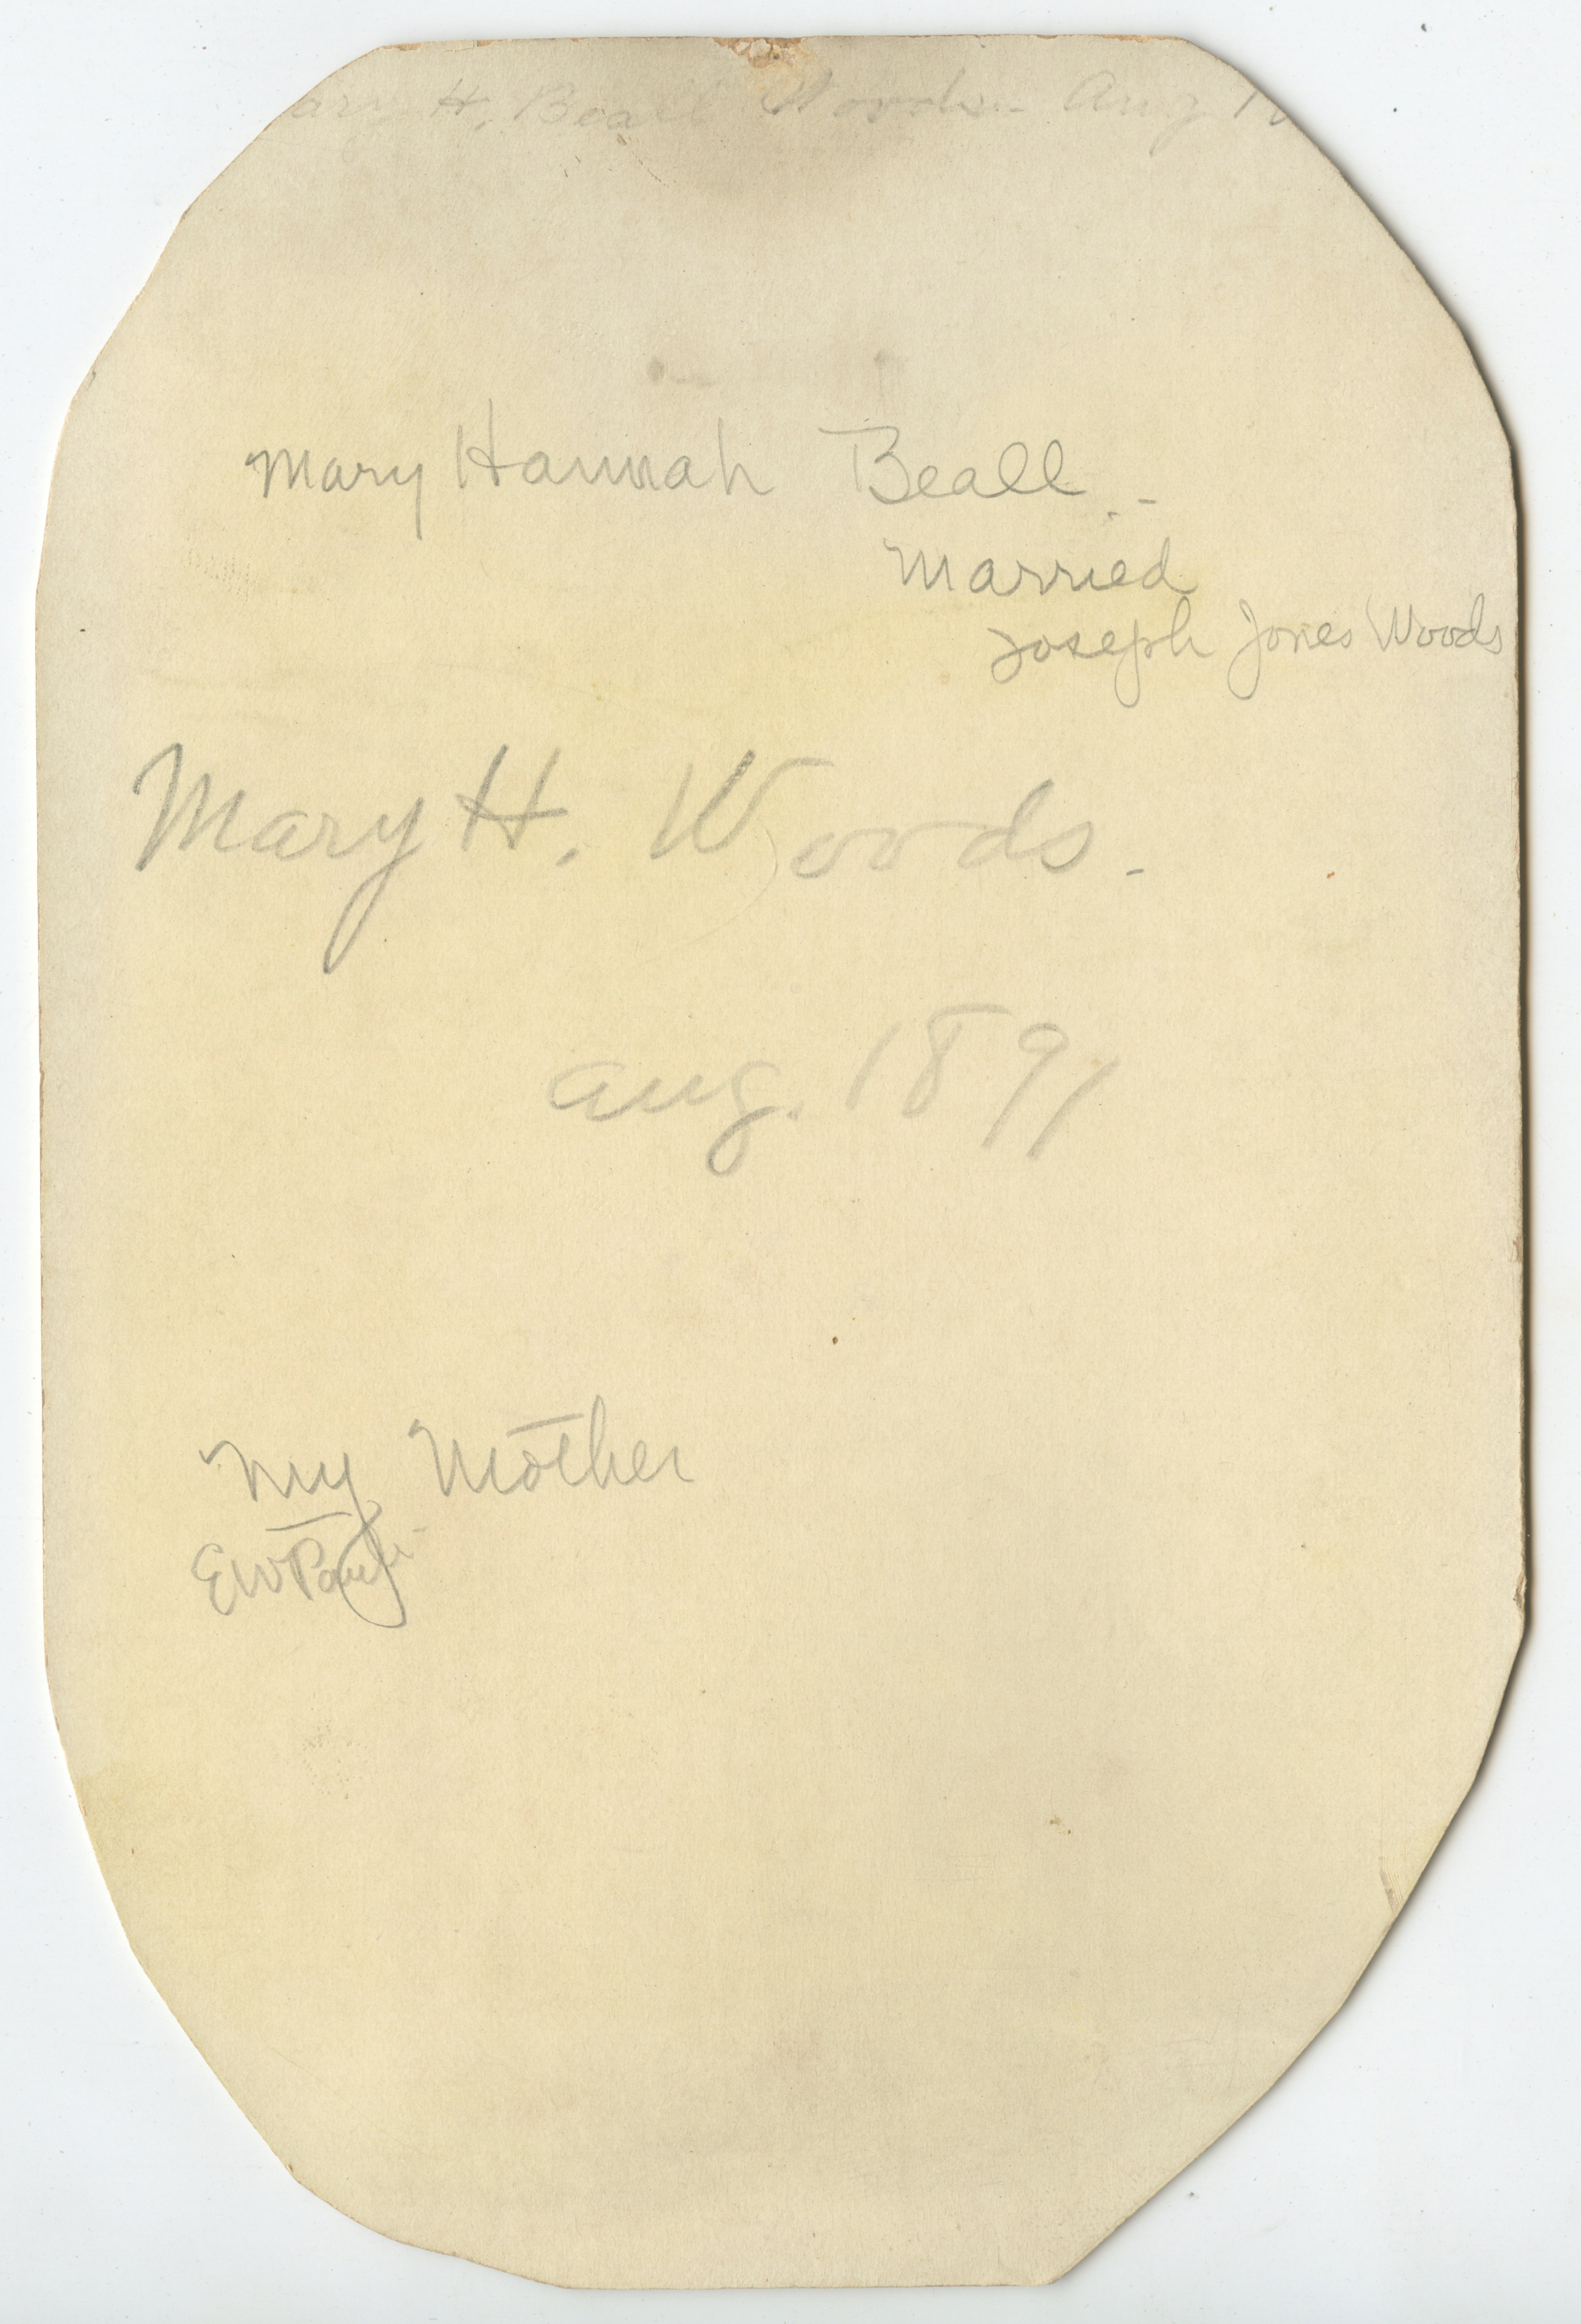 H. Beall Woods - Aug
Mary Hannah Beall. -
Married
Joseph Jones Woods
Mary H. Woods. -
Aug. 1891
My Mother
EW